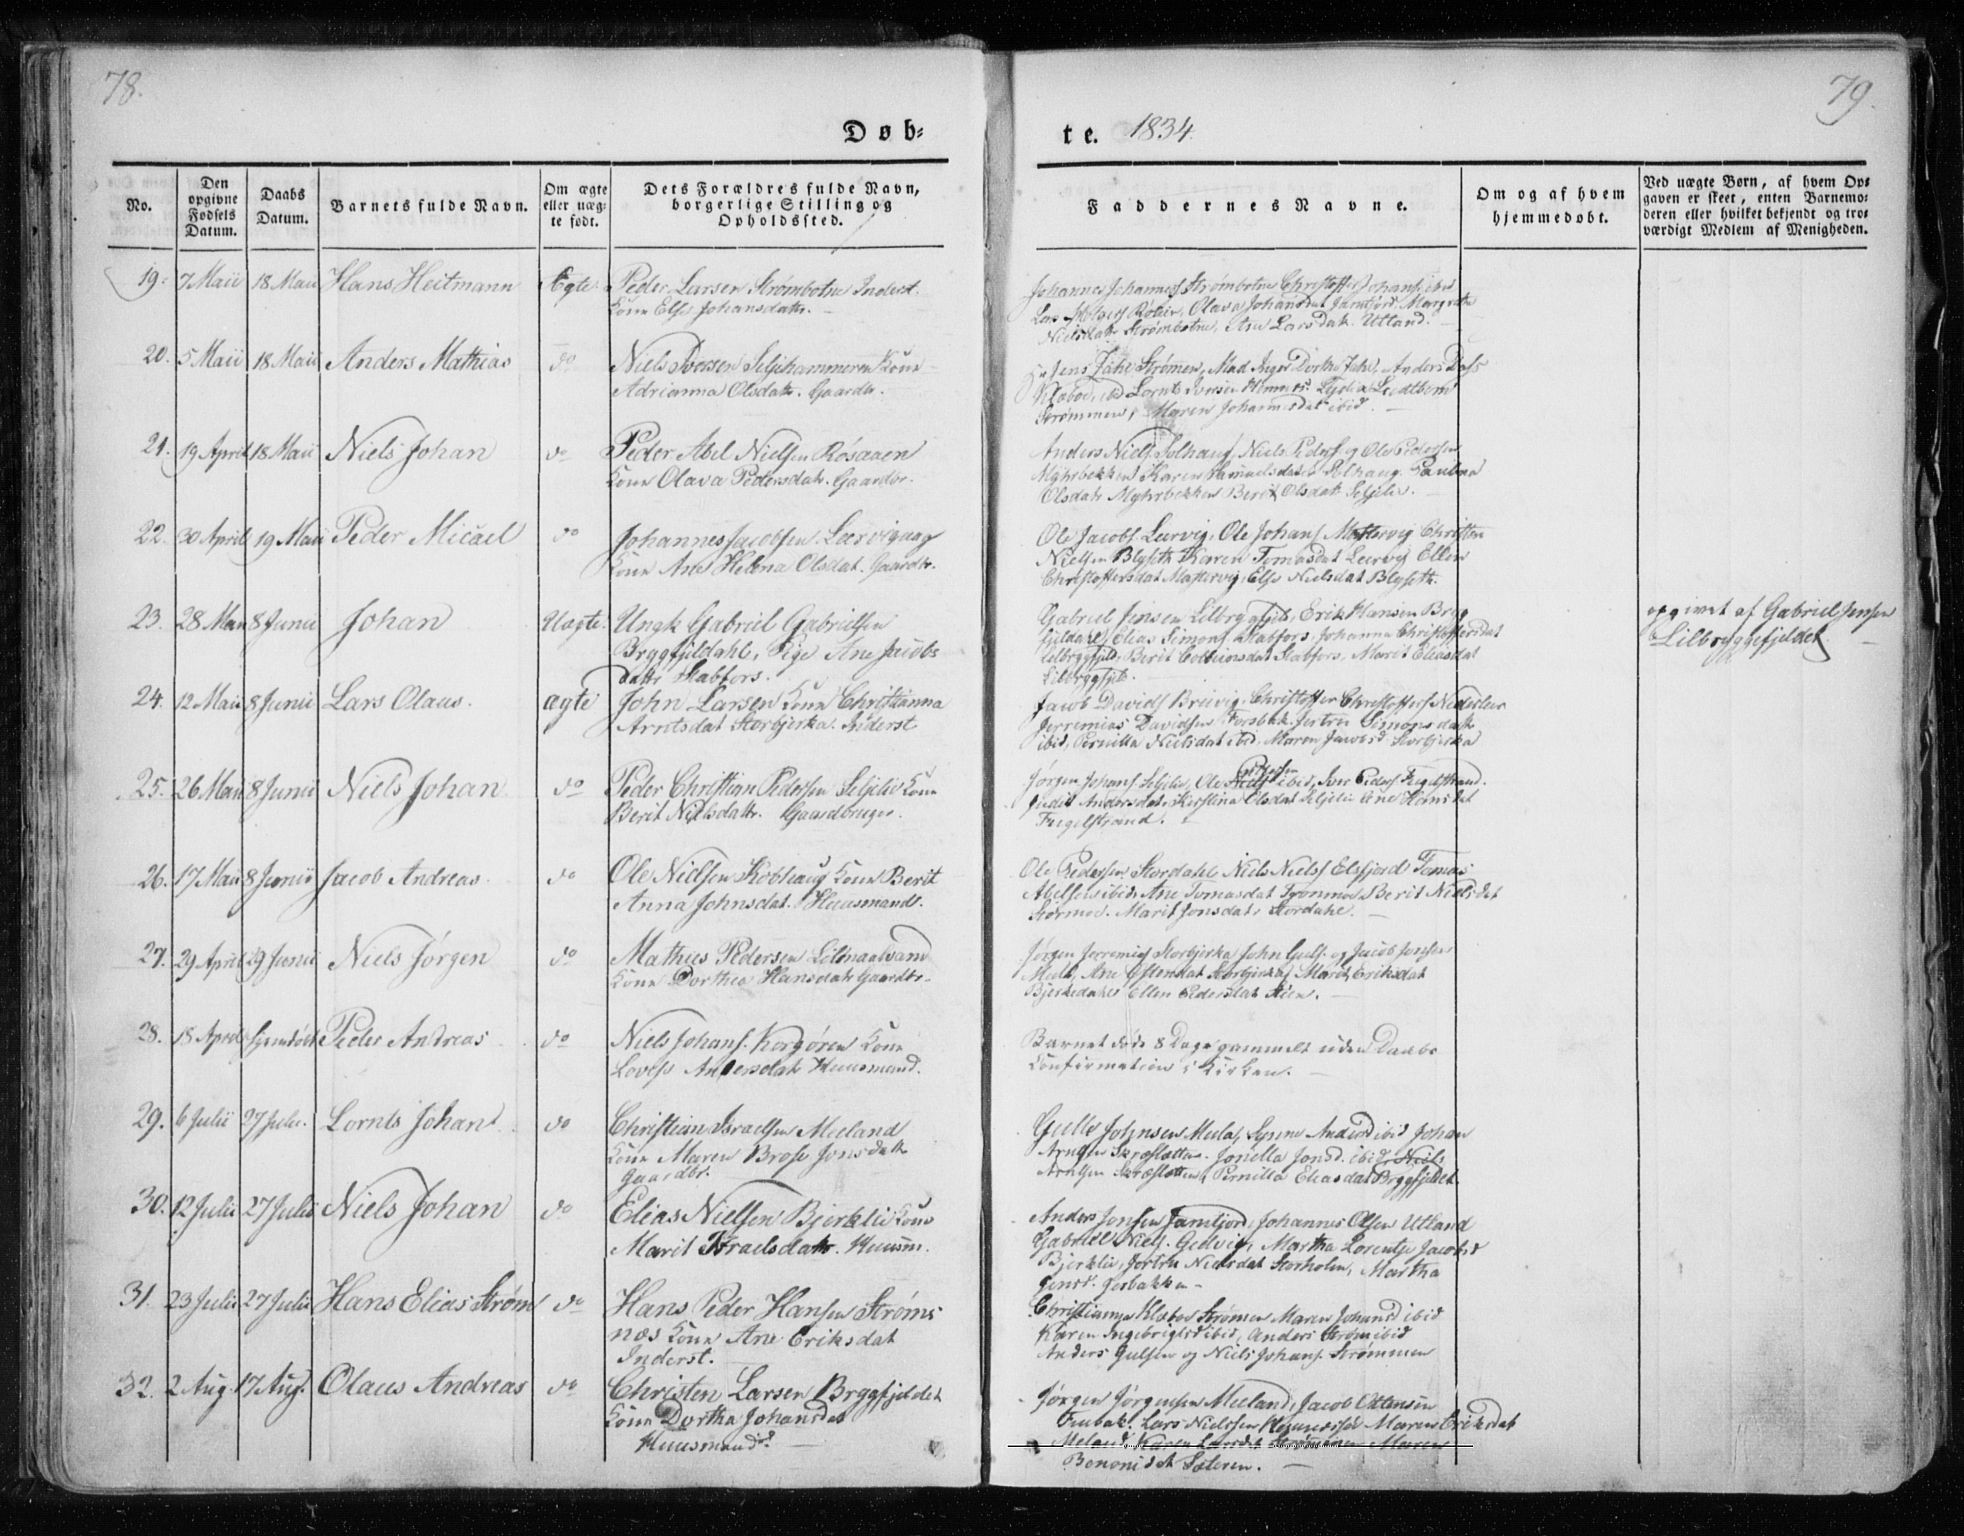 78.
79.
Døb=
te. 1834.
No.
Den opgivne Fødsels Datum.
Daabs Datum.
Barnets fulde Navn.
Om ægte eller uæg-te født.
Dets Forældres fulde Navn, borgerlige Stilling og Opholdssted.
Faddernes Navne.
Om og af hvem hjemmedøbt.
Ved uægte Børn, af hvem Op-
gaven er skeet, enten Barnemo-
deren eller hvilket bekjendt og tro-
værdigt Medlem af Menigheden.
19. 7 Maii 18 Maii Hans Heitmann Ægte Peder Larsen Strømbotn Inderst.
Kone Else Johansdatr.
Johannes Johannes Strømbotn Christoffer Johans. ibid
Olava Johansdat Jamtjord. Margrete
Nielsdatr Strømbotn, Ane Larsdatr. Utland.
20. 5 Maii 18 Maii Anders Mathias do Niels Iversen Seljehammeren Kone
Adrianna Olsdatr. Gaardbr.
Jens Zahl Strømen, Mad Inger Dorthe Zahl, Anders Dass
Klæboe, ibd Lornts Iversen Lydia
Strømmen, Maren Johannesdat ibid.
21. 19 April 18 Maii Niels Johan do Peder Abel Nielsen Røsaaen
Kone Olava Pedersdatr. Gaardbr.
Anders Niels. Solhaug, Niels Peders. og Ole Pedersen
Myhrbekken, Karen Samuelsdatr Solhaug, Paulina
Olsdatr Myhrbekken Berit Olsdatr Seljelie.
22. 30 April 19 Maii Peder Micael do Johannes Jacobsen Leervigaag
Kone Ane Helena Olsdat. Gaardbr.
Ole Jacobs. Leervig, Ole Johans. Mastervig Christen
Nielsen Blyseth Karen Tomasdat Leervig Ellen
Christoffersdat Mastervig, Else Nielsdat Blyseth.
23. 28 Maii 8 Junii Johan Uægte. Ungk Gabriel Gabrielsen
Bryggfjeldahl, Pige Ane Jacobs
datr Stabfors.
Gabriel Jensen Lilbrygfjel, Erik Hansen Bryg
fjeldahl, Elias Simons. Stabfors, Johanna Christoffersdat
Lilbrygfjel, Berit Stabfors, Marit Eliasdat
Lilbrygfjel.
opgivet af Gabriel Jensen
Lilbryggefjeldet.
24. 12 Maii 8 Junii Lars Olaus. ægte John Larsen Kone Christianna
Arntsdat Storbjerka. Inderst
Jacob Davids Breivig, Christoffer Christoffers Nederleer
Jerremias Davidsen Forsbak. Jertru
ibid, Pernilla Nielsdat ibid, Maren Jacobsd Storbjerka
25. 26 Maii 8 Junii Niels Johan do Peder Christian Pedersen Seljelie Kone
Berit Nielsdatr. Gaardbruger.
Pedersen
Jørgen Johans. Seljelie, Ole Niels ibid, Iver Peders. Fugelstrand.
Judit Andersdat, Kirstina Olsdat Seljelie Ane Hansdat
Fugelstrand.
26. 17 Maii 8 Junii Jacob Andreas. do Ole Nielsen Kobhaug Kone Berit
Anna Johnsdat. Huusmand.
Ole Pedersen Stordahl Niels Niels Elsfjord Tomas
Abelsen ibid, Ane Tomasdat Berit Nielsdat
Stormoe. Marit Jonsdat Stordahl.
27. 29 April 29 Junii Niels Jørgen do Mathies Pedersen Lilonaalvand
Kone Dorthea Hansdatr Gaardbr.
Jørgen Jerremias Storbjerka John Guls. og Jacob Jonsen
Mula, Ane Ostensdat Storbjerka, Marit Eriksdat
Bjerkedahl Ellen Pedersdat Aaen.
28. 18 April hjemdøbt Peder Andreas do Niels Johans. Korgøren Kone
Lovise Andersdatr Huusmand.
Barnet døde 8 Dage gammelt uden Daabs
Confirmation i Kirken.
29. 6 Julii 27 Julii. Lornts Johan do Christian Israelsen Meeland
Kone Maren Brose Jonsdatr
Gaardbr.
Gulle Johnsen Mula, Synne Andersd ibid Johan
Arntsen Skræslatten. Jonella Jonsd. ibid, Niels
Arntsen Skræslatten, Pernilla Eliasdat Bryggfjeldet.
30. 12 Julii 27 Julii Niels Johan do Elias Nielsen Bjerklie Kone
Marit Israelsdatr. Huusm.
Anders Jonsen Jamtjord, Johannes Olsen Utland
Gabriel Niels. Gedvig, Martha Lorentse Jacobsd
Bjerklie, Jertru Nielsdat Storholm, Martha
Jensd. Jorbakken
31. 23 Julii 27 Julii Hans Elias Strøm do Hans Peder Hansen Strøms
næs Kone Ane Eriksdat
Inderst.
Christianna Klæboe Strømen Maren Johansd ibid
Karen Ingebrigtsd ibid, Anders Strøm ibid
Anders Gulsen og Niels Johans. Strømmen
32. 2 Aug. 17 Aug. Olaus Andreas do Christen Larsen Bryggfjeldet
Kone Dortha Johansdat
Huusmand.
Jørgen Jørgensen Meeland, Jacob Ottensen
Lars Nielsen Maren Eriksdat
Meland, Karen Larsdat Strømmen Maren
Benonidat Sæteren.